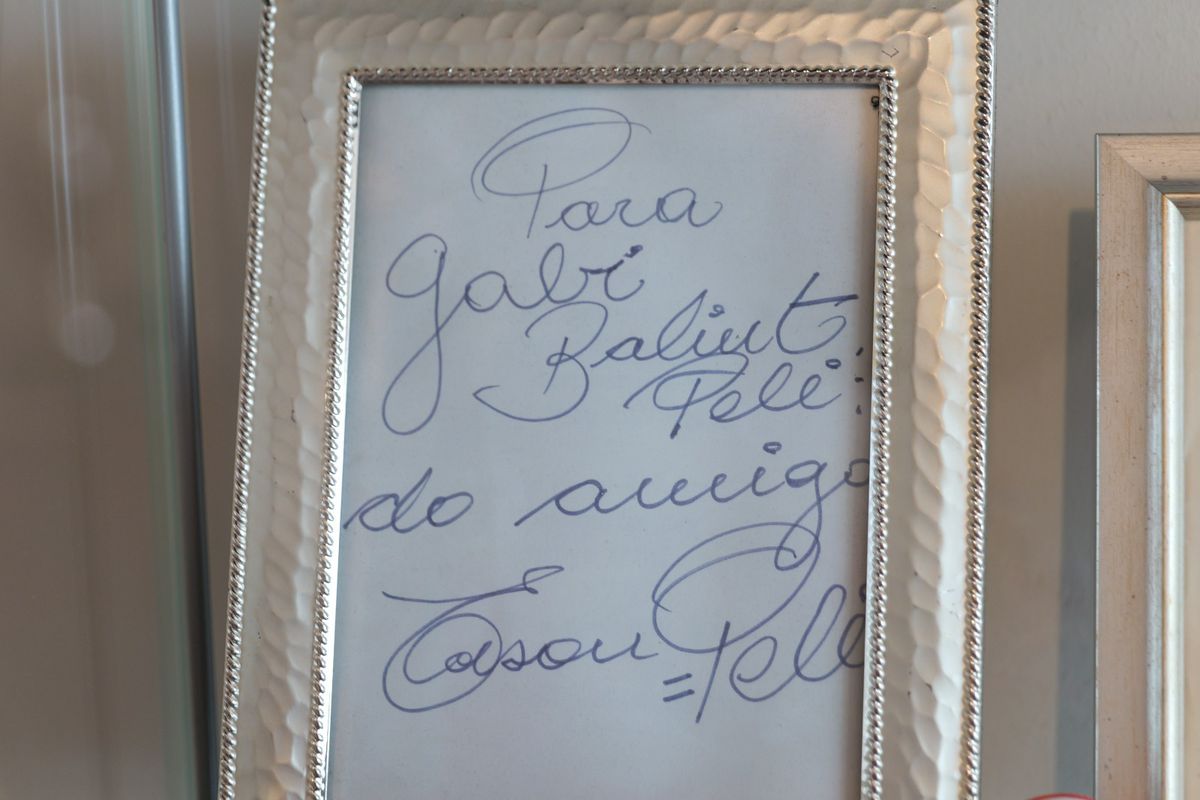 Para
Gabi
Balint
Pelé:
do amigo
Edson Pelé